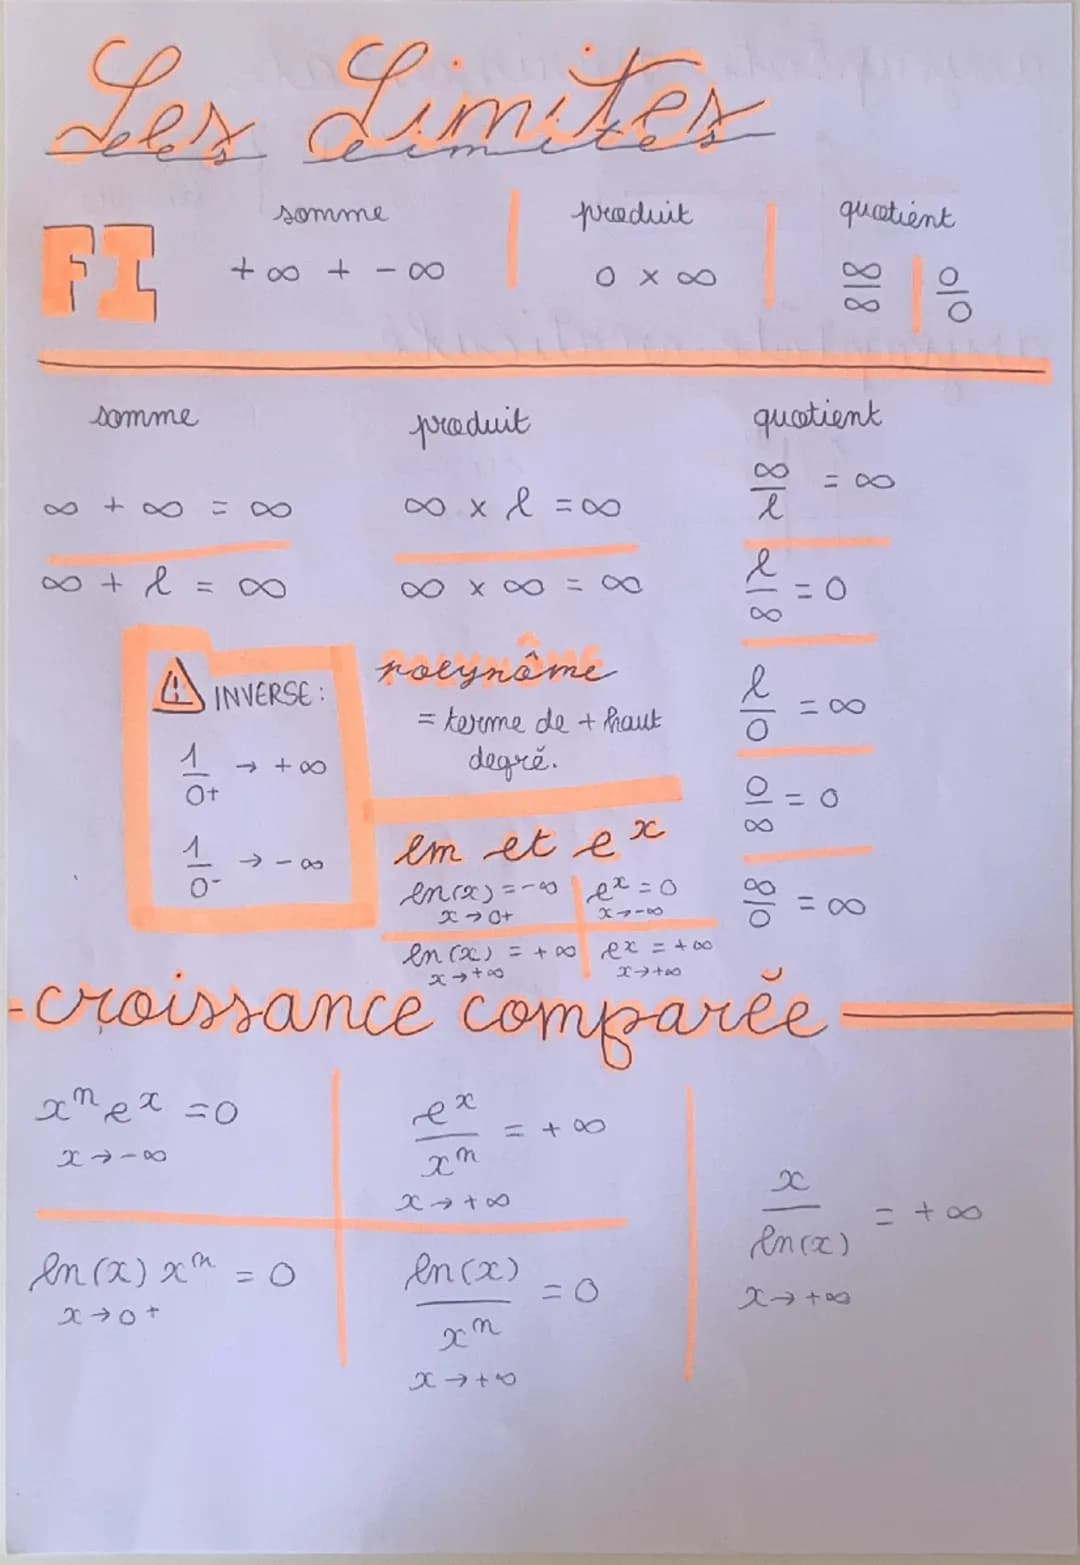 Les Limites
FI
somme
+∞ + -∞
produit
0 × ∞
quotient
∞/∞ | 0/0
somme
∞ + ∞ = ∞
∞ + l = ∞
produit
∞ × l = ∞
∞ × ∞ = ∞
quotient
∞/l = ∞
l/∞ = 0
l/0 = ∞
0/∞ = 0
∞/0 = ∞
⚠ INVERSE :
1/0+ → +∞
1/0- → -∞
polynôme
= terme de + haut
degré.
ln et e^x
ln(x) = -∞
x → 0+
e^x = 0
x → -∞
ln(x) = +∞
x → +∞
e^x = +∞
x → +∞
croissance comparée
x^n e^x = 0
x → -∞
e^x/x^n = +∞
x → +∞
x/ln(x) = +∞
x → +∞
ln(x) x^n = 0
x → 0+
ln(x)/x^n = 0
x → +∞